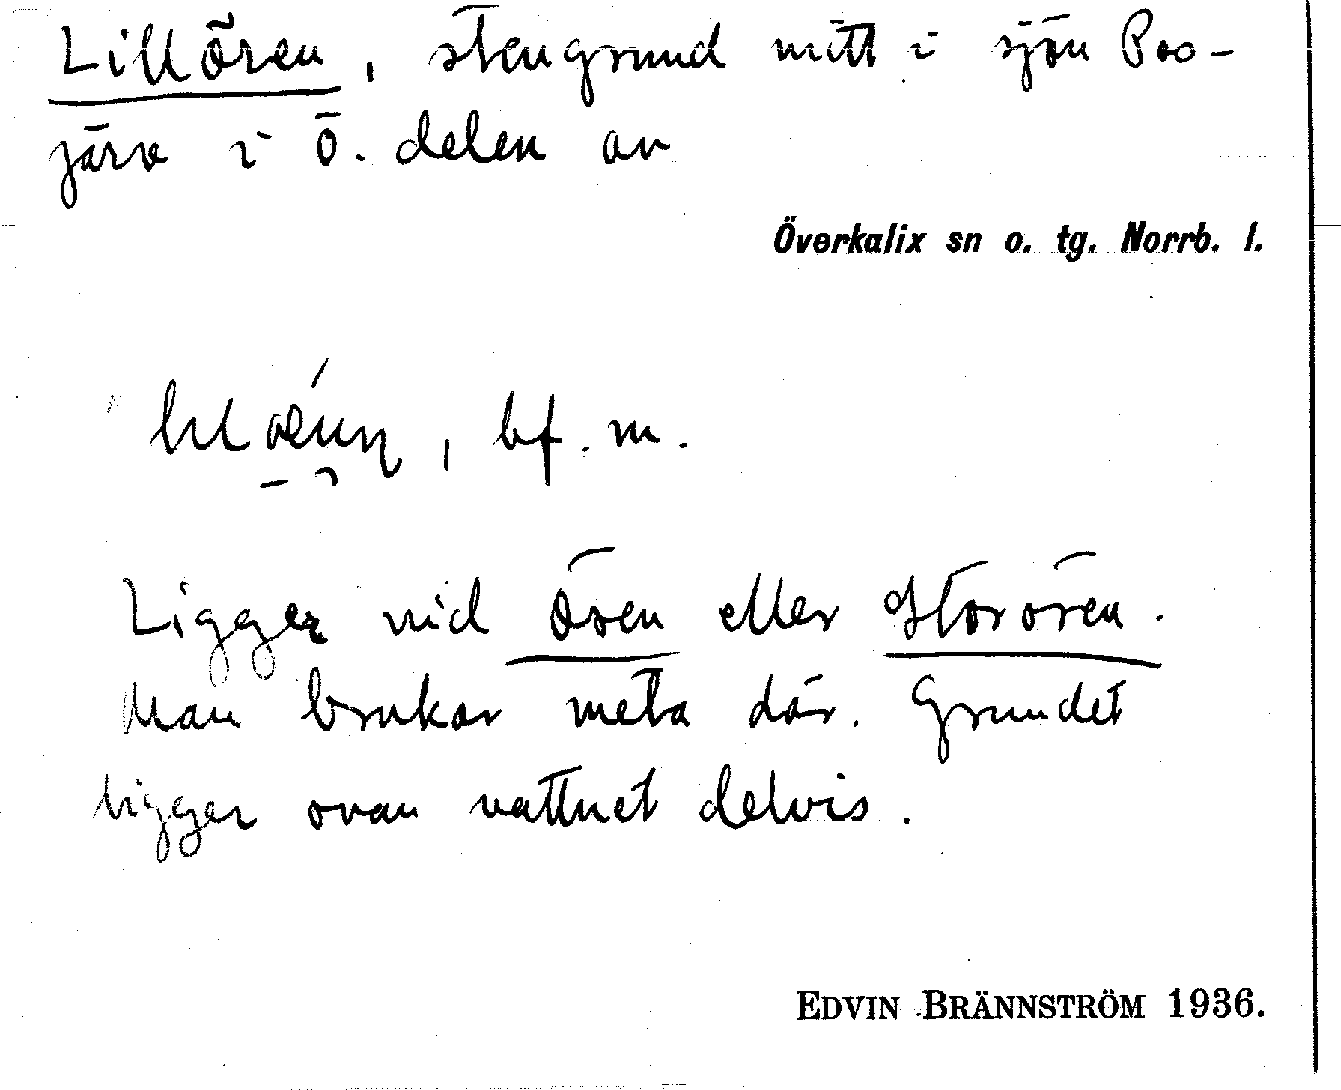 Lillören, stengrund mitt i sjön Poo-
järv i Ö. delen av
Överkalix sn o. tg. Norrb. l.
, bf. m.
Ligger vid Ören eller Storören.
Man brukar meta där. Grundet
ligger ovan vattnet delvis.
EDVIN BRÄNNSTRÖM 1936.